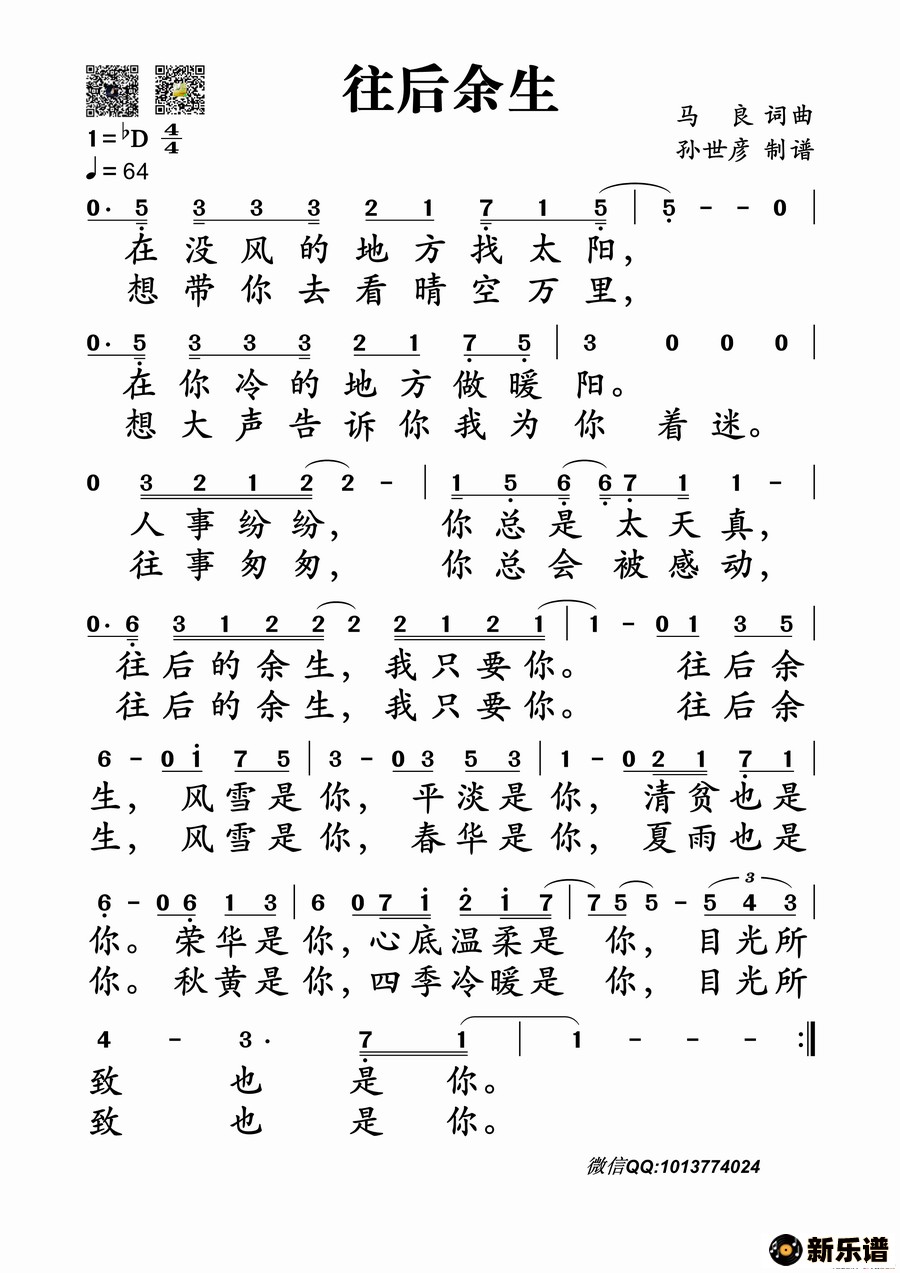 往后余生
马 良 词曲
1=♭D 4/4
孙世彦 制谱
♩=64
0· 5 3 3 3 2 1 7 1 5 | 5 - - 0 |
在没风的地方找太阳，
想带你去看晴空万里，
0· 5 3 3 3 2 1 7 5 | 3 0 0 0 |
在你冷的地方做暖阳。
想大声告诉你我为你着迷。
0 3 2 1 2 2 - | 1 5 6 6 7 1 1 - |
人事纷纷，你总是太天真，
往事匆匆，你总会被感动，
0· 6 3 1 2 2 2 2 1 2 1 | 1 - 0 1 3 5 |
往后的余生，我只要你。往后余
往后的余生，我只要你。往后余
6 - 0 1 7 5 | 3 - 0 3 5 3 | 1 - 0 2 1 7 1 |
生，风雪是你，平淡是你，清贫也是
生，风雪是你，春华是你，夏雨也是
6 - 0 6 1 3 | 6 0 7 1 2 1 7 | 7 5 5 - 3 5 4 3 |
你。荣华是你，心底温柔是你，目光所
你。秋黄是你，四季冷暖是你，目光所
4 - 3· 7 1 | 1 - - - :|
致也是你。
致也是你。
微信QQ:1013774024
新乐谱